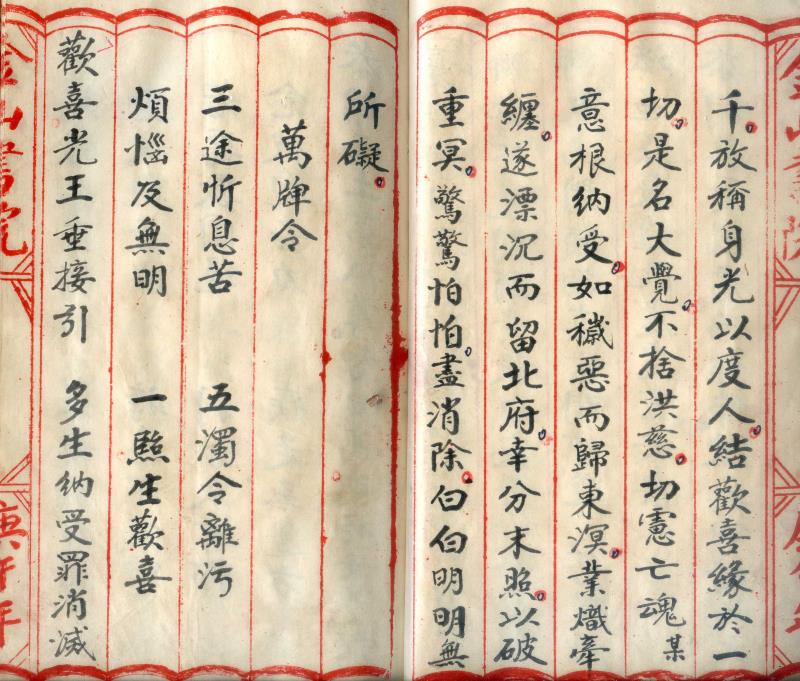 千放稱身光以度人結歡喜緣於一
切是名大覺不捨洪慈切憲亡魂某
意根納受如穢惡而歸東溟業熾牽
纏遂漂沉而留北府幸分末照以破
重冥驚驚怕怕盡消除白白明明無
所礙
萬牌令
三途忻息苦 五濁令離污
煩惱及無明 一照生歡喜
歡喜光王垂接引 多生納受罪消滅
金山書院
庚午年